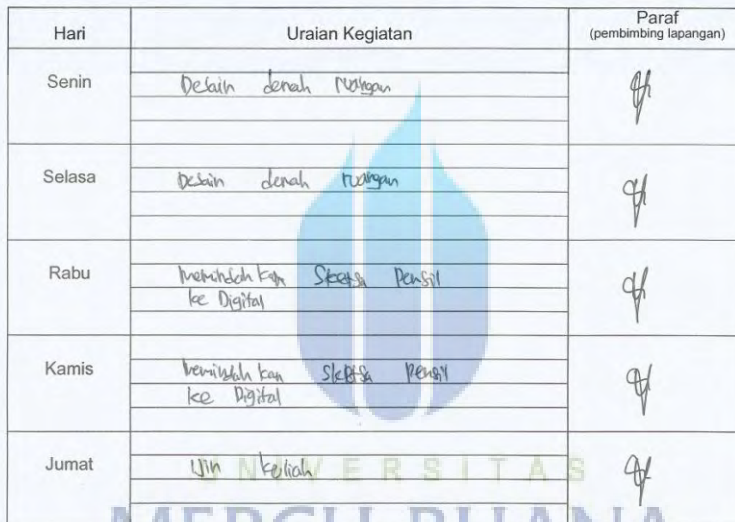 Hari Uraian Kegiatan Paraf
(pembimbing lapangan)
Senin Desain denah ruangan
Selasa Desain denah ruangan
Rabu memindahkan Sketsa Pensil
ke Digital
Kamis memindahkan Sketsa Pensil
ke Digital
Jumat Ujin kuliah
UNIVERSITAS
MERCU BUANA